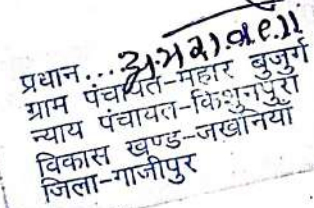 प्रधान...
ग्राम पंचायत-महार बुजुर्ग
न्याय पंचायत-किशुनपुरा
विकास खण्ड-जखनियाँ
जिला-गाजीपुर